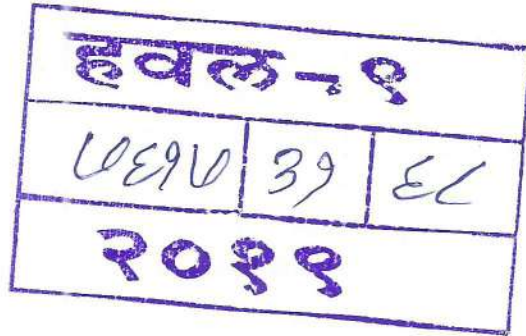 हवल-१
७६१७ ३१ ६८
२०११